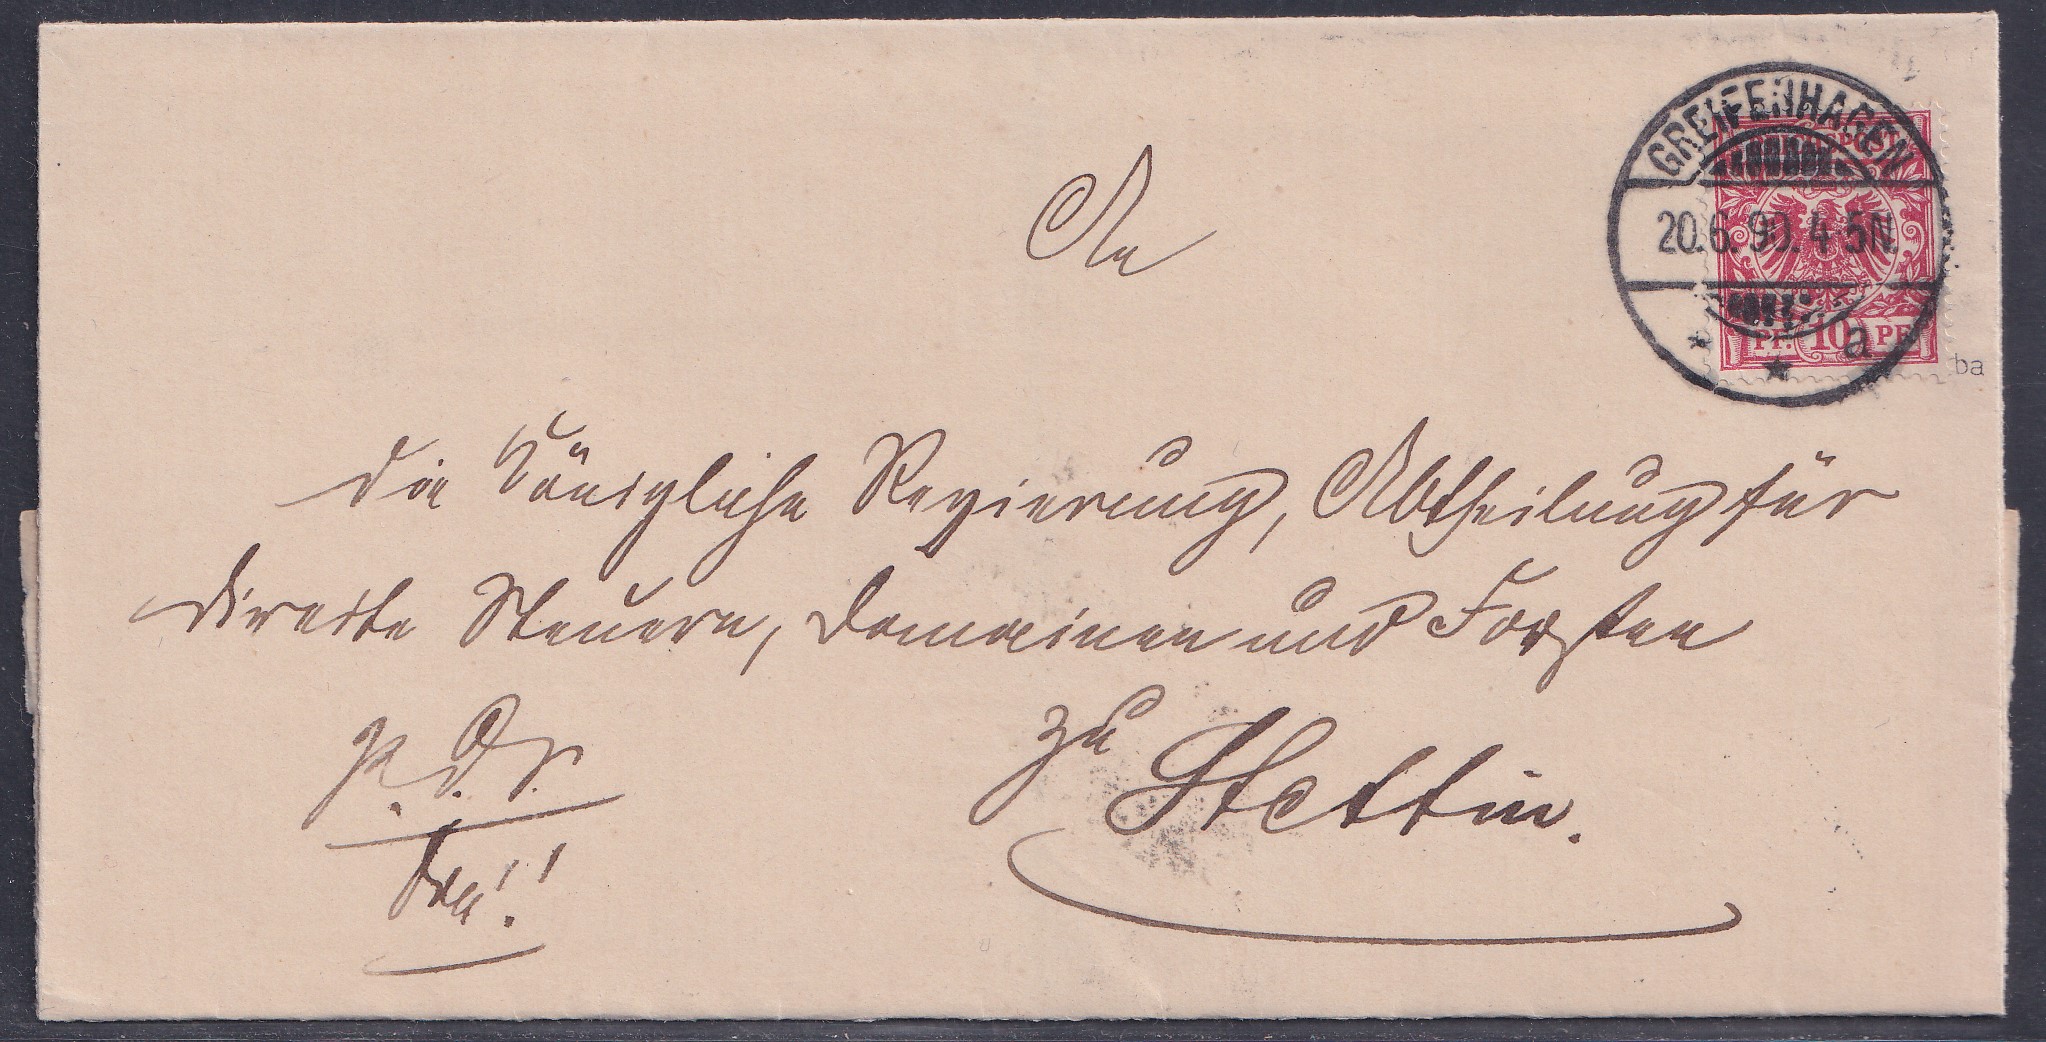 GREIFENHAGEN
20.6.90.4-5N.
a
REICHSPOST
PF. 10 PF.
ba
An
die Königliche Regierung, Abtheilung für
direkte Steuern, Domainen und Forsten
zu Stettin.